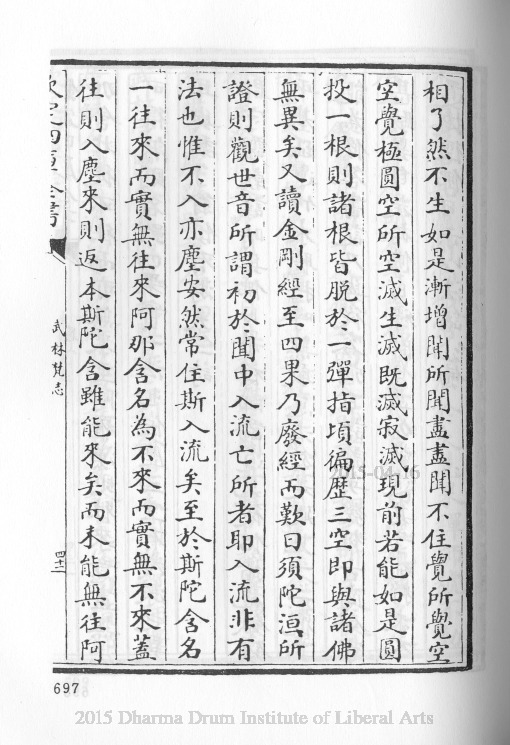 相了然不生如是漸增聞所聞盡盡聞不住覺所覺空
空覺極圓空所空滅生滅既滅寂滅現前若能如是圓
投一根則諸根皆脫於一彈指頃徧歴三空即與諸佛
無異矣又讀金剛經至四果乃廢經而歎曰須陀洹所
證則觀世音所謂初於聞中入流亡所者耶入流非有
法也惟不入亦塵安然常住斯入流矣至於斯陀含名
一往來而實無往來阿那含名為不來而實無不來蓋
往則入塵來則返本斯陀含雖能來矣而未能無往阿
欽定四庫全書
武林梵志
四十二
697
2015-04-16
2015 Dharma Drum Institute of Liberal Arts